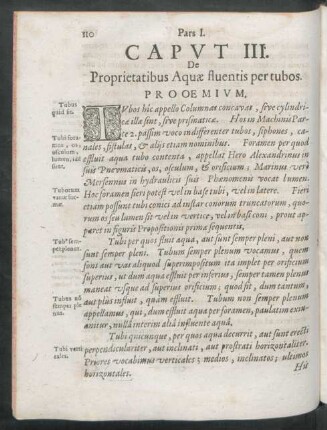 110
Pars I.
CAPVT III.
De
Proprietatibus Aquæ fluentis per tubos.
PROOEMIVM.
Tubus
quid sit.
TVbos hîc appello Columnas concavas, sive cylindri-
cæ illæ sint, sive prismaticæ. Hos in Machinis Par-
te 2. passim voco indifferenter tubos, siphones, ca-
nales, fistulas, & alijs etiam nominibus. Foramen per quod
effluit aqua tubo contenta, appellat Hero Alexandrinus in
suis Pneumaticis, os, osculum, & orificium: Marinus verò
Mersennus in hydraulicis suis Phænomenis vocat lumen.
Hoc foramen fieri potest vel in base tubi, vel in latere. Fieri
etiam possunt tubi conici ad instar conorum truncatorum, quo-
rum os seu lumen sit vel in vertice, vel in basi coni, prout ap-
paret in figuris Propositionis primæ sequentis.
Tubi per quos fluit aqua, aut sunt semper pleni, aut non
sunt semper pleni. Tubum semper plenum vocamus, quem
fons aut vas aliquod superimpositum ita implet per orificium
superius, ut dum aqua effluit per inferius, semper tamen plenus
maneat usque ad superius orificium; quod fit, dum tantum,
aut plus influit, quàm effluit. Tubum non semper plenum
appellamus, qui, dum effluit aqua per foramen, paulatim exin-
anitur, nullâ interim aliâ influente aquâ.
Tubi quicunque, per quos aqua decurrit, aut sunt erecti
perpendiculariter, aut inclinati, aut prostrati horizontaliter.
Priores vocabimus verticales; medios, inclinatos; ultimos
horizontales.
Hu
Tubi fora-
men, os,
osculum,
lumen, ori-
ficium.
Tuborum
varia for-
ma.
Tub' sem-
per plenus.
Tubus nõ
semper ple-
nus.
Tubi verti-
cales.